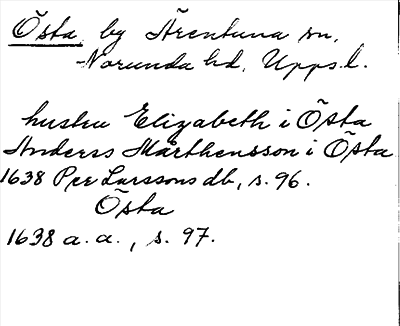 Östa by Ärentuna sn,
Norunda hd, Upps.l.
hustru Elizabeth i Östa
Anders Mårthensson i Östa
1638 Per Larssons db, s. 96.
Östa
1638 a. a., s. 97.